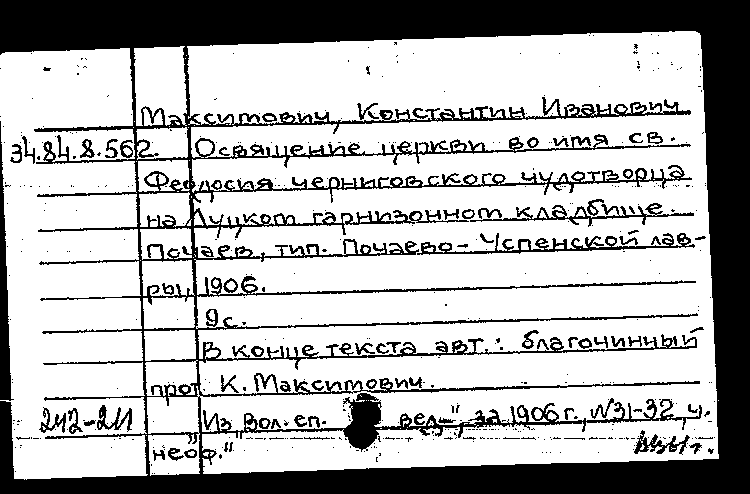 Максимович, Константин Иванович
34.84.8.562. Освящение церкви во имя св.
Феодосия черниговского чудотворца
на Луцком гарнизонном кладбище.
Почаев, тип. Почаево-Успенской лав-
ры, 1906.
9 с.
В конце текста авт.: благочинный
прот. К. Максимович.
242-211 Из „Вол. еп. вед-", за 1906 г., №31-32, ч.
„неоф."